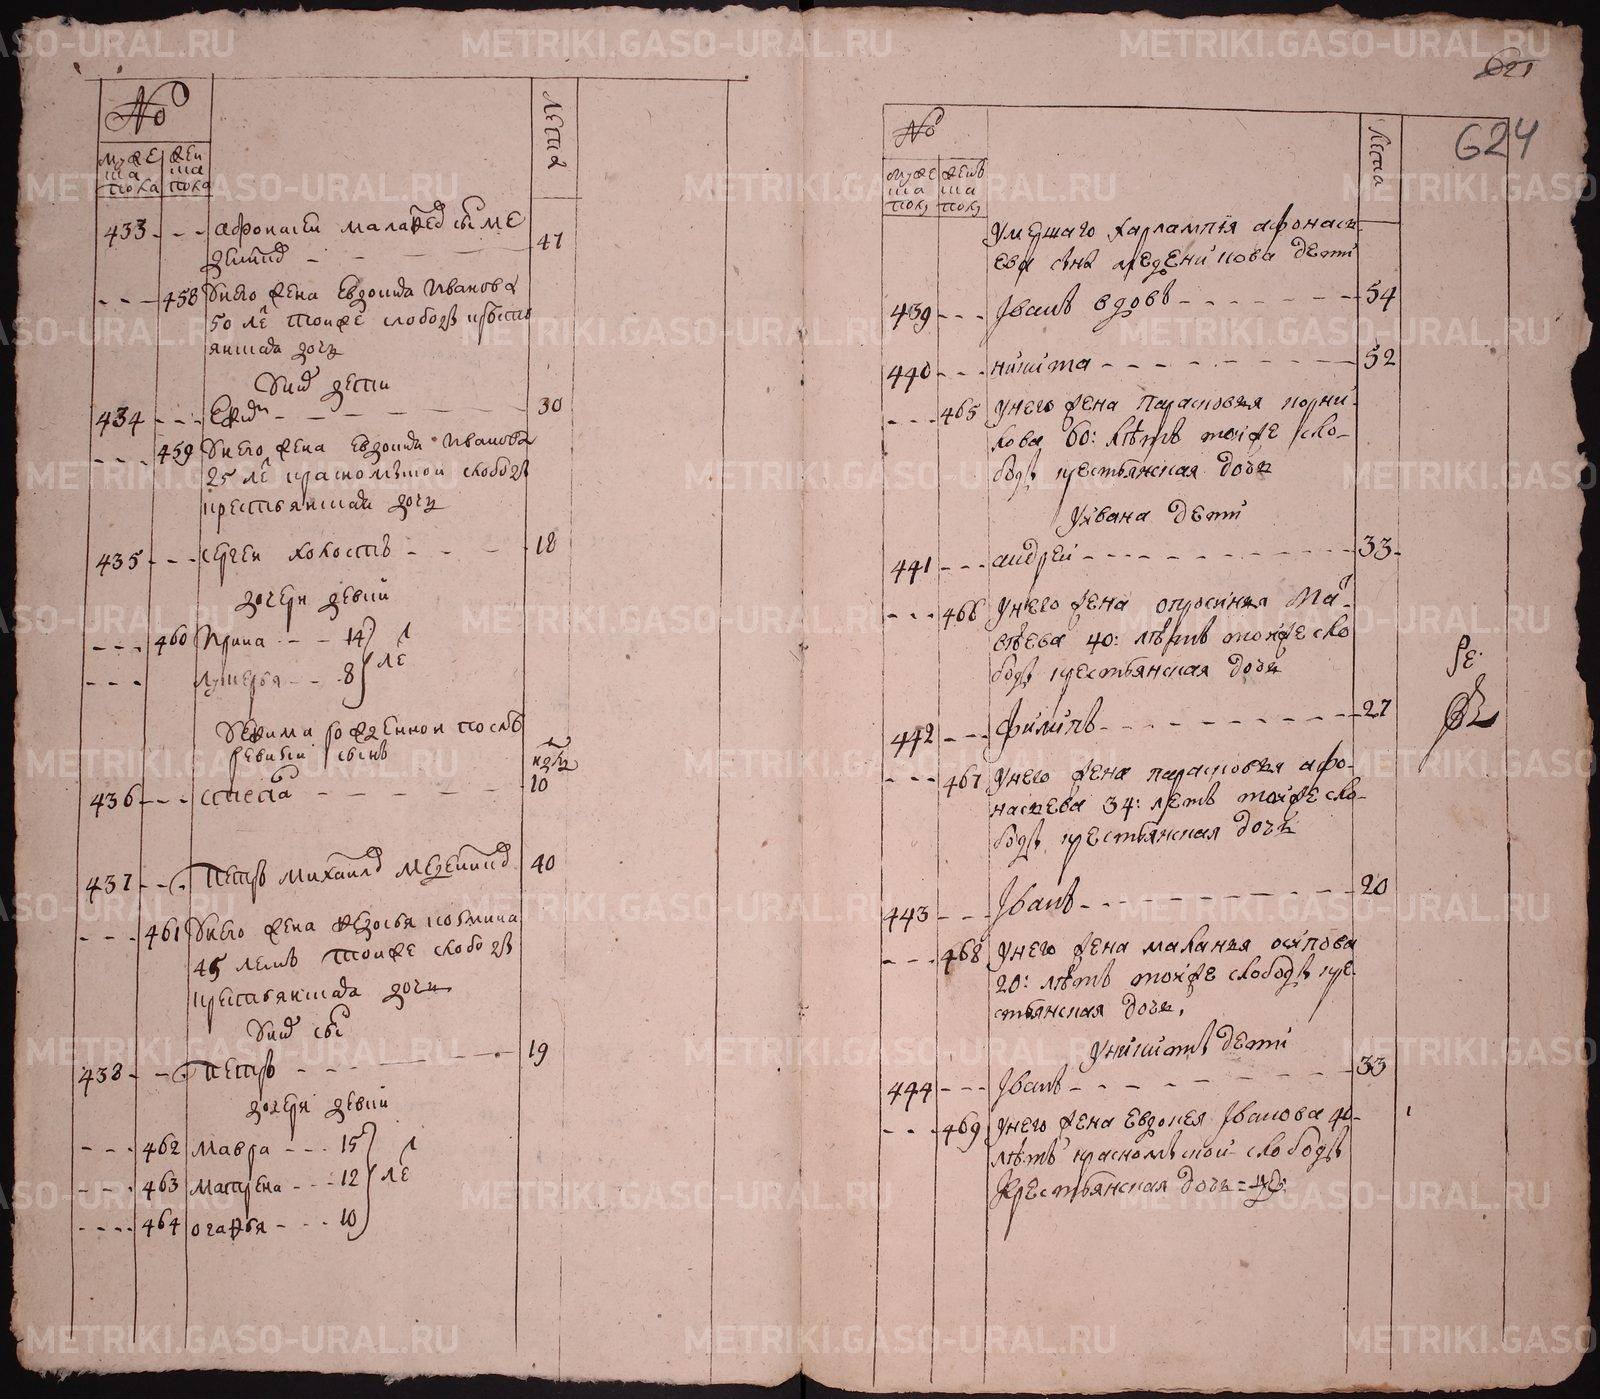 №
муже
ска
пола
жен
ска
пола
лета
433
47
458 У него жена Евдокия Иванова
50 ле той же слободы кресть
янская дочь
У них дети
434 30
459 У него жена Евдокия Иванова
25 ле красномыской слободы
крестьянская дочь
435 Сергей холостъ 18
дочери девки
460 Ирина 14
Лукерья 8
ле
У Ефима рожденной послѣ
ревизии сынъ
436 10
437 Петръ Михайло 40
461 У него жена Федосья
45 летъ той же слободы
крестьянская дочь
У них сы
438 Петръ 19
дочери девки
462 Мавра 15
463 Матрена 12
464 Огафья 10
ле
621
624
№
муже
ска
полу
женъ
ска
полу
лета
Умершаго Харлампiя афонась
ева сна меденикова дети
439 Iванъ вдовъ 54
440 никита 52
465 У него жена Парасковья корни
кова 60: лѣтъ той же сло
боды крестьянская дочь
У Ивана дети
441 андрей 33
466 У него жена опросинья Ма
вѣева 40: лѣтъ той же сло
боды крестьянская дочь
442 филипъ 27
467 У него жена парасковья афо
насьева 34: летъ той же сло
боды крестьянская дочь
443 Iванъ 20
468 У него жена маланья осипова
20: лѣтъ той же слободы кре
стьянская дочь.
У никиты дети
444 Iванъ 33
469 У него жена Евдокея Iванова 40
лѣтъ красномыской слободы
крестьянская дочь
METRIKI.GASO-URAL.RU